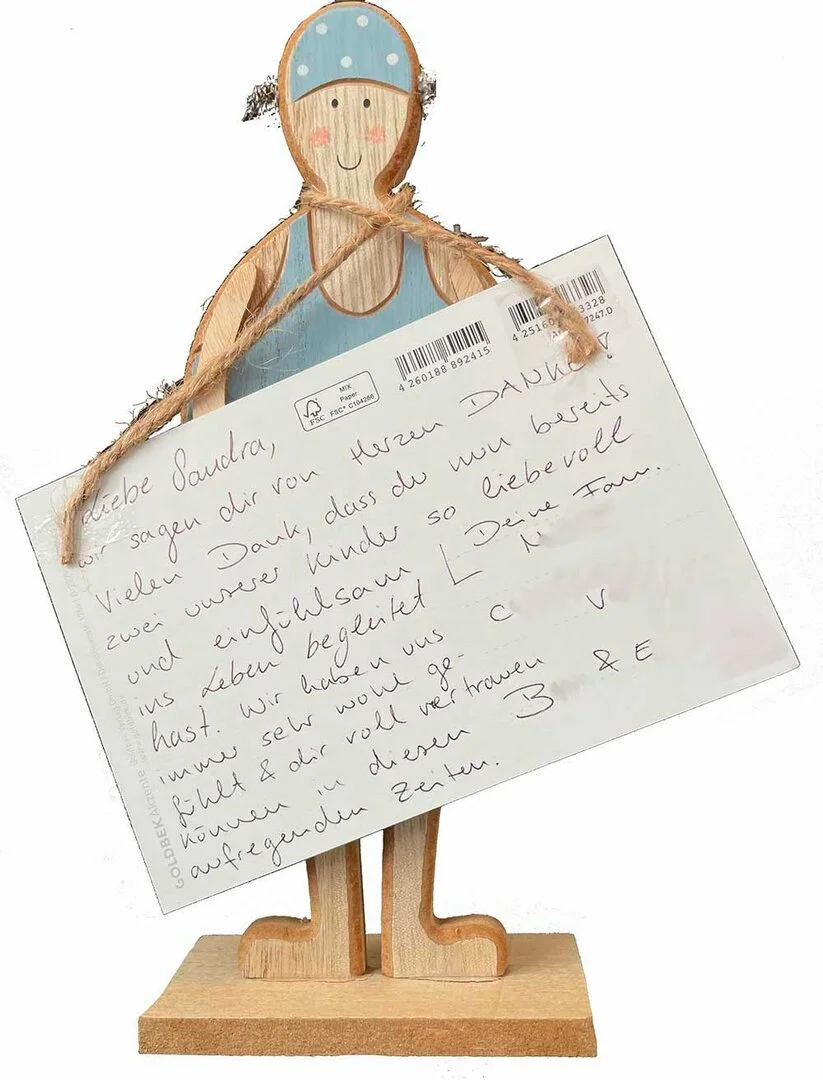 MIX
Paper
FSC
FSC® C104266
4 260188 892415
7247.D
Liebe Sandra,
wir sagen dir von Herzen DANKE!
Vielen Dank, dass du nun bereits
zwei unserer Kinder so liebevoll
und einfühlsam
ins Leben begleitet
hast. Wir haben uns
immer sehr wohl ge-
fühlt & dir voll vertrauen
können in diesen
aufregenden Zeiten.
Deine Fam.
N
C V
B & E
GOLDBEK Akzente